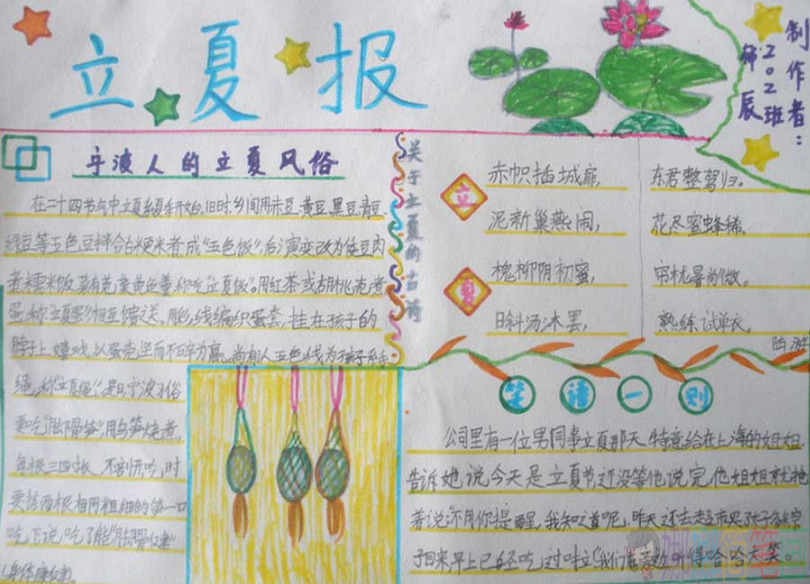 立夏报
制作者：
202班
宁波人的立夏风俗
在二十四节气中立夏夏季开始,旧时,乡间用赤豆、黄豆、黑豆、青豆、
绿豆等五色豆拌合白粳米煮成"五色饭",后演变改为倭豆肉
煮糯米饭,菜有苋菜黄鱼羹,称吃"立夏饭"。用红茶或胡桃壳煮
蛋,称"立夏蛋",相互馈送。用彩线编织蛋套,挂在孩子的
脖子上
以蛋壳坚而不碎为赢。尚有人五色线为孩子系手
绳,称"立夏绳"。是日,宁波习俗
要吃"脚骨笋",用乌笋烧煮,
每根三四
不剖开,吃时
要拣两根相同粗细的笋一口
吃下,说吃了能"脚骨健"
(身体康健)。
关于立夏的古诗
立
夏
赤帜插城扉,
东君整驾归。
泥新巢燕闹,
花尽蜜蜂稀。
槐柳阴初密,
帘栊暑尚微。
日斜汤沐罢,
熟练试单衣。
笑话一则
公司里有一位男同事立夏那天,特意给在上海的姐姐
告诉她,说今天是立夏节,还没等他说完,他姐姐就抢
着说:不用你提醒,我知道呢,昨天还去超市买
回来,早上已经吃过
我们
听得哈哈大笑。